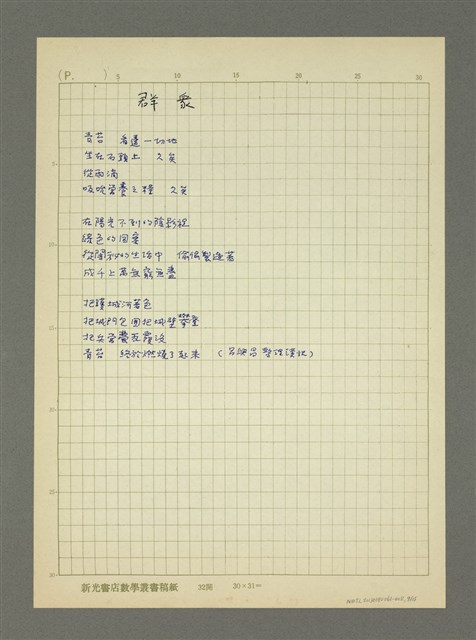 (P.      )
5 10 15 20 25 30
群 眾
青苔 看透一切地
生在石頭上 久矣
從雨滴
吸吮營養之糧 久矣
在陽光不到的陰影裡
綠色的圖案
從閉鎖的生活中 偷偷製造著
成千上萬無窮無盡
把護城河著色
把城門包圍把城壁攀登
把兵營甍瓦覆沒
青苔 終於燃燒了起來 (呂興昌整理謹記)
5
10
15
20
25
30
新光書店數學叢書稿紙 32開 30×31=